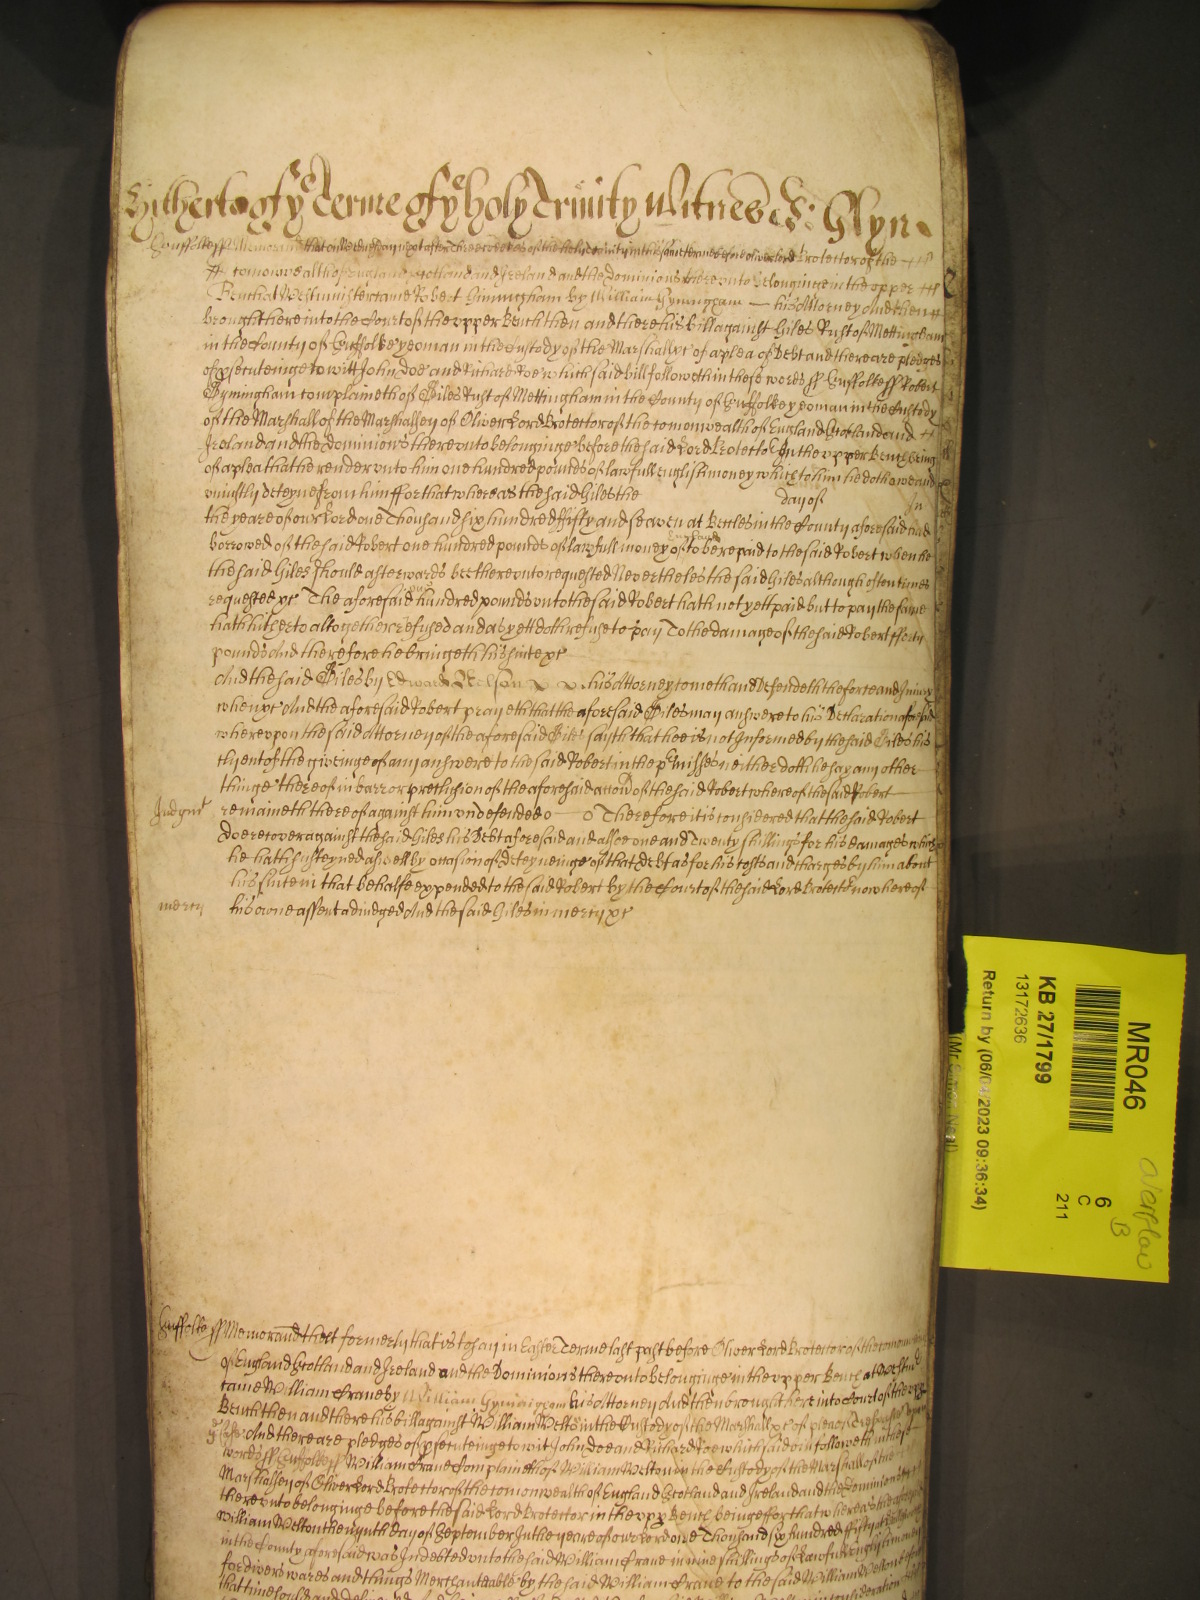 Hitherto of ye Terme of ye holy Trinity Witnes Glyn.
Suffolke ss Memorand that on Wednesday next after Three weekes of the holy Trinity in this same terme before Oliver Lord Protector of the
comonwealth of England Scotland and Ireland and the Dominions thereunto belonginge in the upper
Bench at Westminster came Robert Gimingham by William Gymingham his Attorney And then
brought here into the Court of the upper Bench then and there his bill against Giles Rust of Mettingham
in the County of Suffolke yeoman in the Custody of the Marshall &c of a plea of Debt and there are pledges
of psecuteinge to witt John Doe and Richard Roe which said bill followeth in these words ss Suffolke ss Robert
Gymingham complaineth of Giles Rust of Mettingham in the County of Suffolke yeoman in the Custody
of the Marshall of the Marshalsey of Oliver Lord Protector of the comonwealth of England Scotland and
Ireland and the Dominions thereunto belonginge before the said Lord Protector In the upper Bench being
of a plea that he render unto him one hundred pounds of lawfull English money which to him he doth owe and
uniustly deteyne from him ffor that whereas the said Giles the day of In
the yeare of our Lord one Thousand six hundred ffifty and seaven at Beccles in the County aforesaid had
borrowed of the said Robert one hundred pounds of lawfull money of England to be repaid to the said Robert when he
the said Giles should afterwards bee thereunto requested Neverthelesse the said Giles although often times
requested &c The aforesaid hundred pounds unto the said Robert hath not yett paid but to pay the same
hath hitherto altogether refused and as yett doth refuse to pay To the damage of the said Robert fforty
pounds And therefore he bringeth his suite &c
And the said Giles by Edward Nelson his Attorney cometh and Defendeth the force and Iniury
when &c And the aforesaid Robert prayeth that the aforesaid Giles may answere to his Declaration aforesd
whereupon the said Attorney of the aforesaid Giles sayth that hee is not Informed by the said Giles his
Clyent of the giveinge of any answere to the said Robert in the pmisses neither doth he say any other
thinge thereof in barr or preclusion of the aforesaid accon of the said Robert whereof the said Robert
Judgmt remaineth thereof against him undefended Therefore it is considered that the said Robert
doe recover against the said Giles his Debt aforesaid and alsoe one and Twenty shillings for his damages which
he hath susteyned aswell by occasion of deteyneinge of that debt as for his costs and charges by him about
his suite in that behalfe expended to the said Robert by the Court of the said Lord Protector now here of
mercy his owne assent adiudged And the said Giles in mercy &c
Suffolke ss Memorand that formerly that is to say in Easter Terme last past before Oliver Lord Protector of the comonwealth
of England Scotland and Ireland and the Dominions thereunto belonginge in the upper Bench at Westm
came William Crane by William Gymingham his Attorney And then brought here into Court of the upper
Bench then and there his bill against William Welton in the Custody of the Marshall &c of plea of
And there are pledges of psecuteinge to wit John Doe and Richard Roe which said bill followeth in these
words ss Suffolke ss William Crane Complaineth of William Welton in the Custody of the Marshall of the
Marshalsey of Oliver Lord Protector of the comonwealth of England Scotland and Ireland and the Dominions
thereunto belonginge before the said Lord Protector in the upp Bench being ffor that whereas the aforesaid
William Welton the nynth day of September In the yeare of our Lord one Thousand six hundred ffifty
in the County aforesaid was Indebted unto the said William Crane in nine shillings of Lawfull English money
for divers wares and things Merchantable by the said William Crane to the said William Welton before
that time sould and
MR046
KB 27/1799
13172636
Return by (06/04/2023 09:36:34)
6
C
211
overflow
B